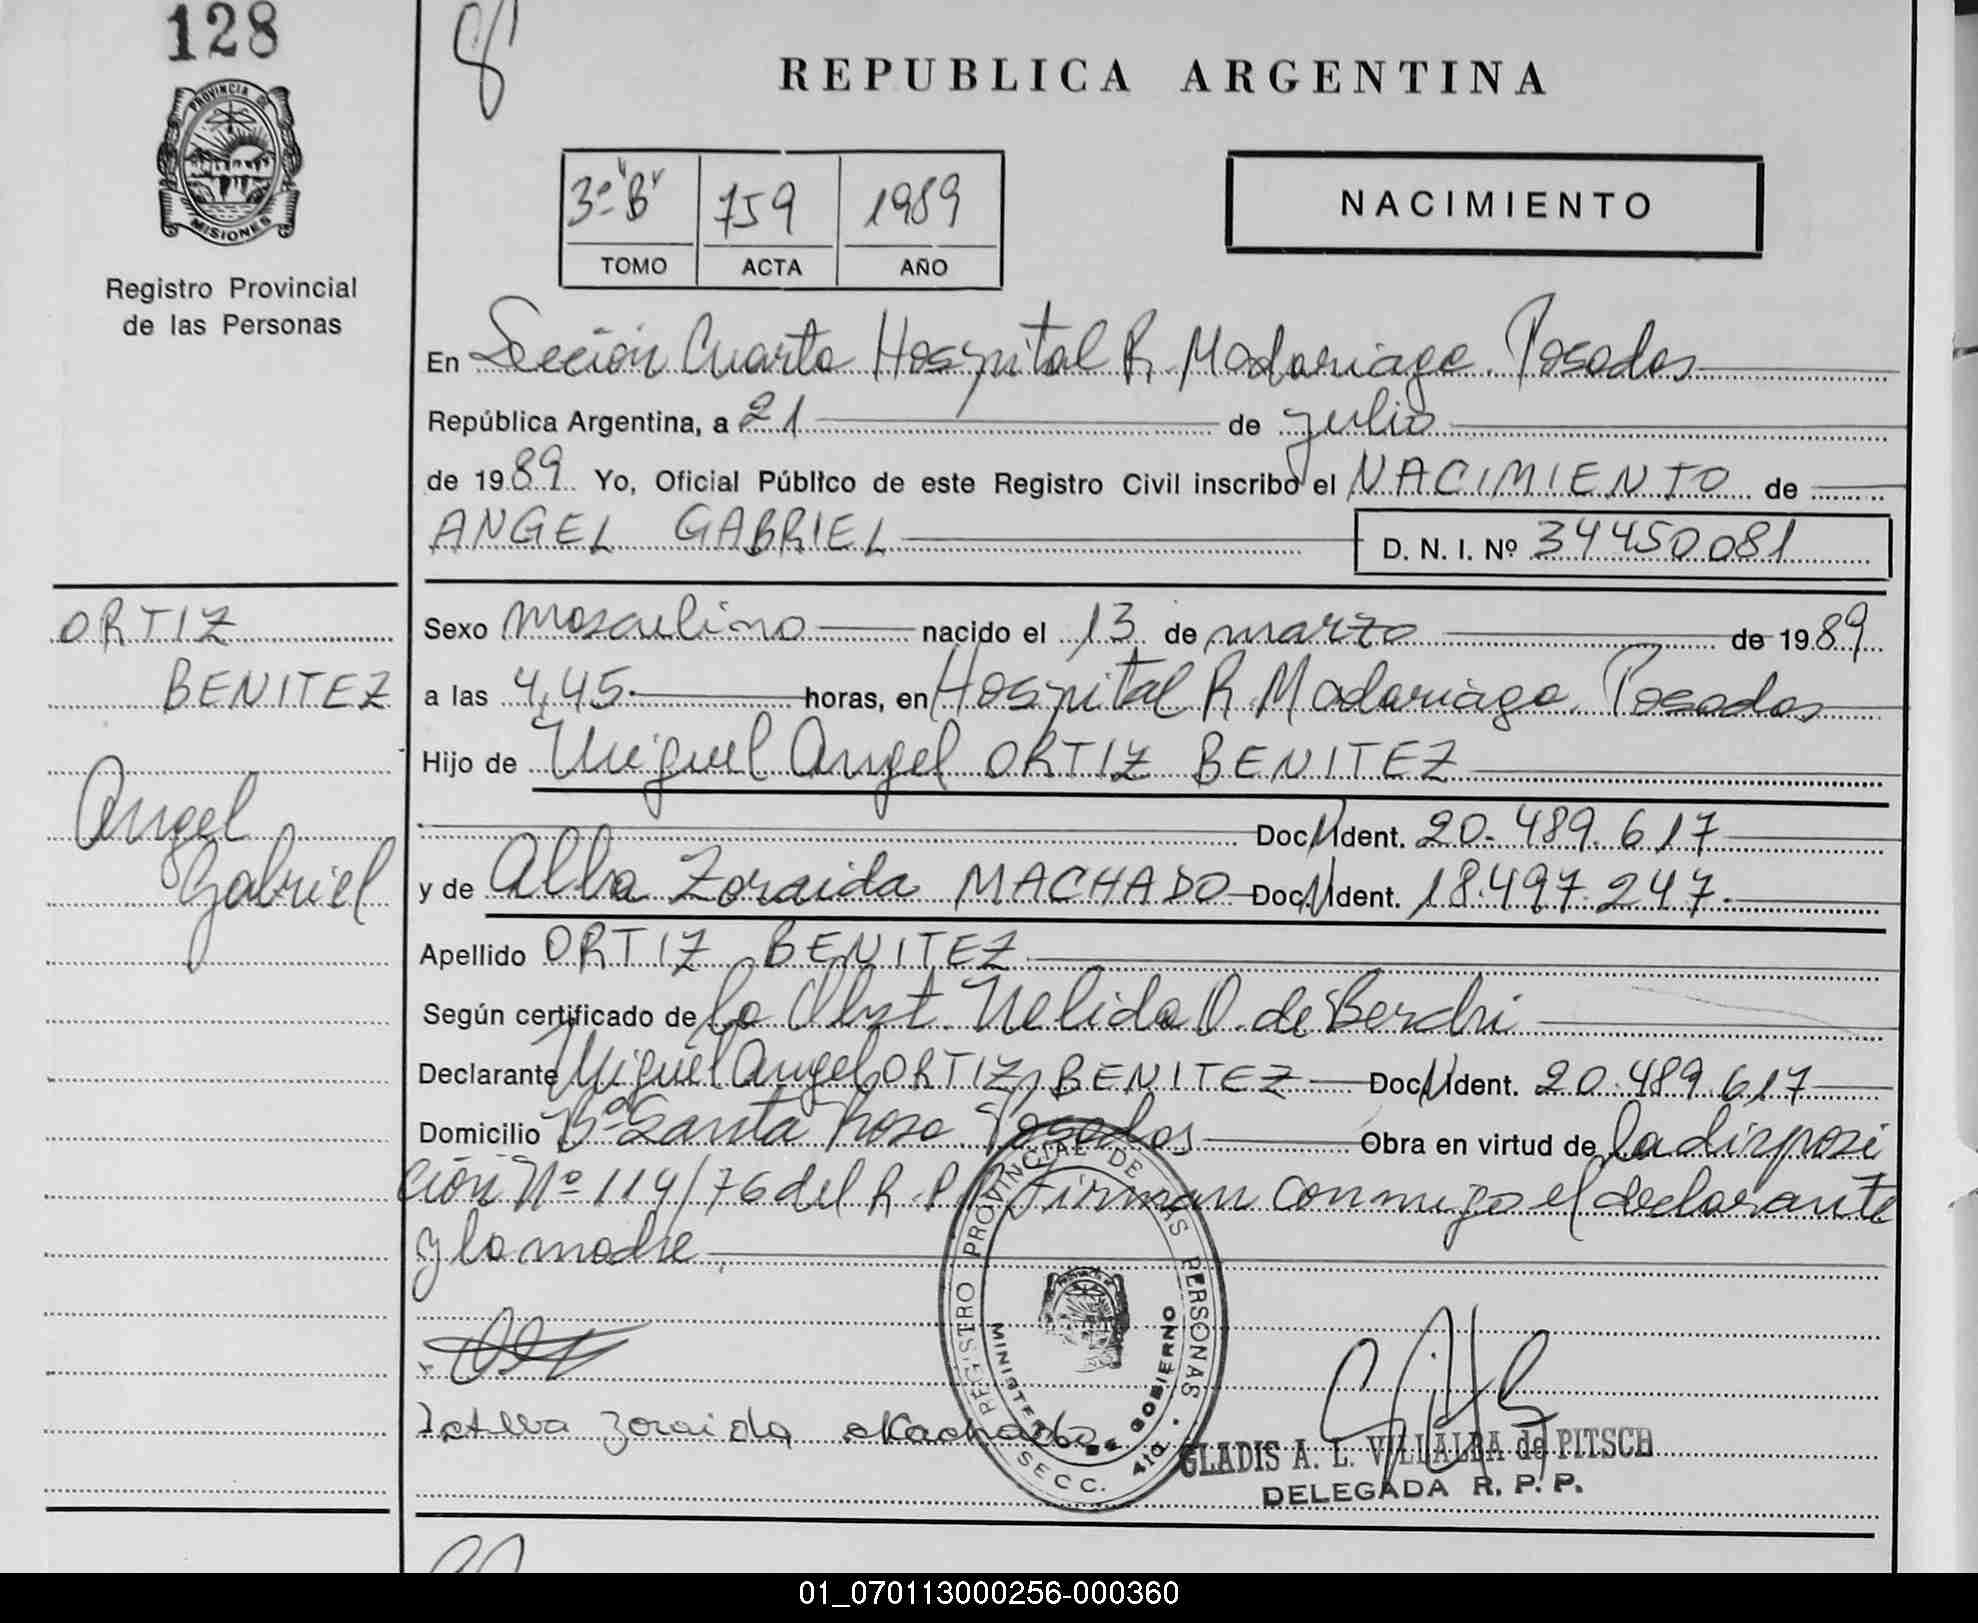 128
PROVINCIA DE
MISIONES
Registro Provincial
de las Personas
ORTIZ
BENITEZ
Angel
Gabriel
REPUBLICA ARGENTINA
3º "B" 759 1989
TOMO ACTA AÑO
NACIMIENTO
En Sección Cuarta Hospital R. Madariaga. Posadas
República Argentina, a 21 de julio
de 1989 Yo, Oficial Público de este Registro Civil inscribo el NACIMIENTO de
ANGEL GABRIEL D. N. I. Nº 34450081
Sexo masculino nacido el 13 de marzo de 1989
a las 4,45. horas, en Hospital R. Madariaga. Posadas
Hijo de Miguel Angel ORTIZ BENITEZ
Doc. N Ident. 20.489.617
y de Alba Zoraida MACHADO Doc. N Ident. 18.497.247.
Apellido ORTIZ BENITEZ
Según certificado de la Obst. Nelida O. de
Declarante Miguel Angel ORTIZ BENITEZ Doc. N Ident. 20.489.617
Domicilio Bº Santa Rosa Posadas Obra en virtud de la disposi
ción Nº 114/76 del R.P.P. Firman conmigo el declarante
y la madre
Alba Zoraida Machado
REGISTRO PROVINCIAL DE LAS PERSONAS
MINISTERIO DE GOBIERNO
SECC. 4ta.
GLADIS A. L. VILLALBA de PITSCH
DELEGADA R. P. P.
01_070113000256-000360